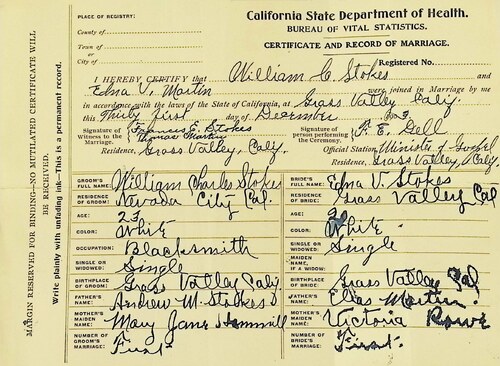 California State Department of Health.
BUREAU OF VITAL STATISTICS.
CERTIFICATE AND RECORD OF MARRIAGE.
PLACE OF REGISTRY:
County of
Town of
or
City of
Registered No.
I HEREBY CERTIFY that William C. Stokes and
Edna V. Martin were joined in Marriage by me
in accordance with the laws of the State of California, at Grass Valley Calif.
this Thirty first day of December
Signature of Witness to the Marriage. Francis E. Stokes
Thomas Martin
Signature of Person performing the Ceremony. Dell
Residence, Grass Valley, Calif.
Official Station, Minister of Gospel
Residence, Grass Valley, Calif.
GROOM'S FULL NAME: William Charles Stokes
RESIDENCE OF GROOM: Nevada City Cal.
AGE: 23
COLOR: White
OCCUPATION: Blacksmith
SINGLE OR WIDOWED: Single
BIRTHPLACE OF GROOM: Grass Valley Calif
FATHER'S NAME: Andrew M. Stokes
MOTHER'S MAIDEN NAME: Mary Jane Hammill
NUMBER OF GROOM'S MARRIAGE: First
BRIDE'S FULL NAME: Edna V. Stokes
RESIDENCE OF BRIDE: Grass Valley Cal
AGE:
COLOR: White
SINGLE OR WIDOWED: Single
MAIDEN NAME, IF A WIDOW:
BIRTHPLACE OF BRIDE: Grass Valley Cal
FATHER'S NAME: Elias Martin
MOTHER'S MAIDEN NAME: Victoria Rowe
NUMBER OF BRIDE'S MARRIAGE: First.
MARGIN RESERVED FOR BINDING—NO MUTILATED CERTIFICATE WILL BE RECEIVED.
Write plainly with unfading ink—This is a permanent record.